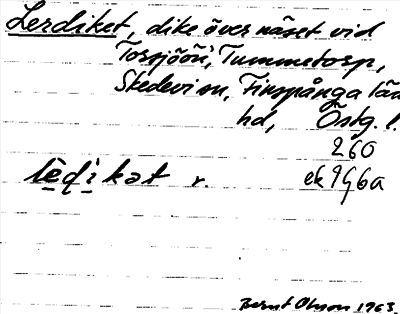 Lerdiket, dike över näset vid
Torsjön i Tummetorp,
Skedevi sn, Finspånga län
hd, Östg. l.
260
ek 9G6a
lèdikət r.
Bernt Olsson 1963.